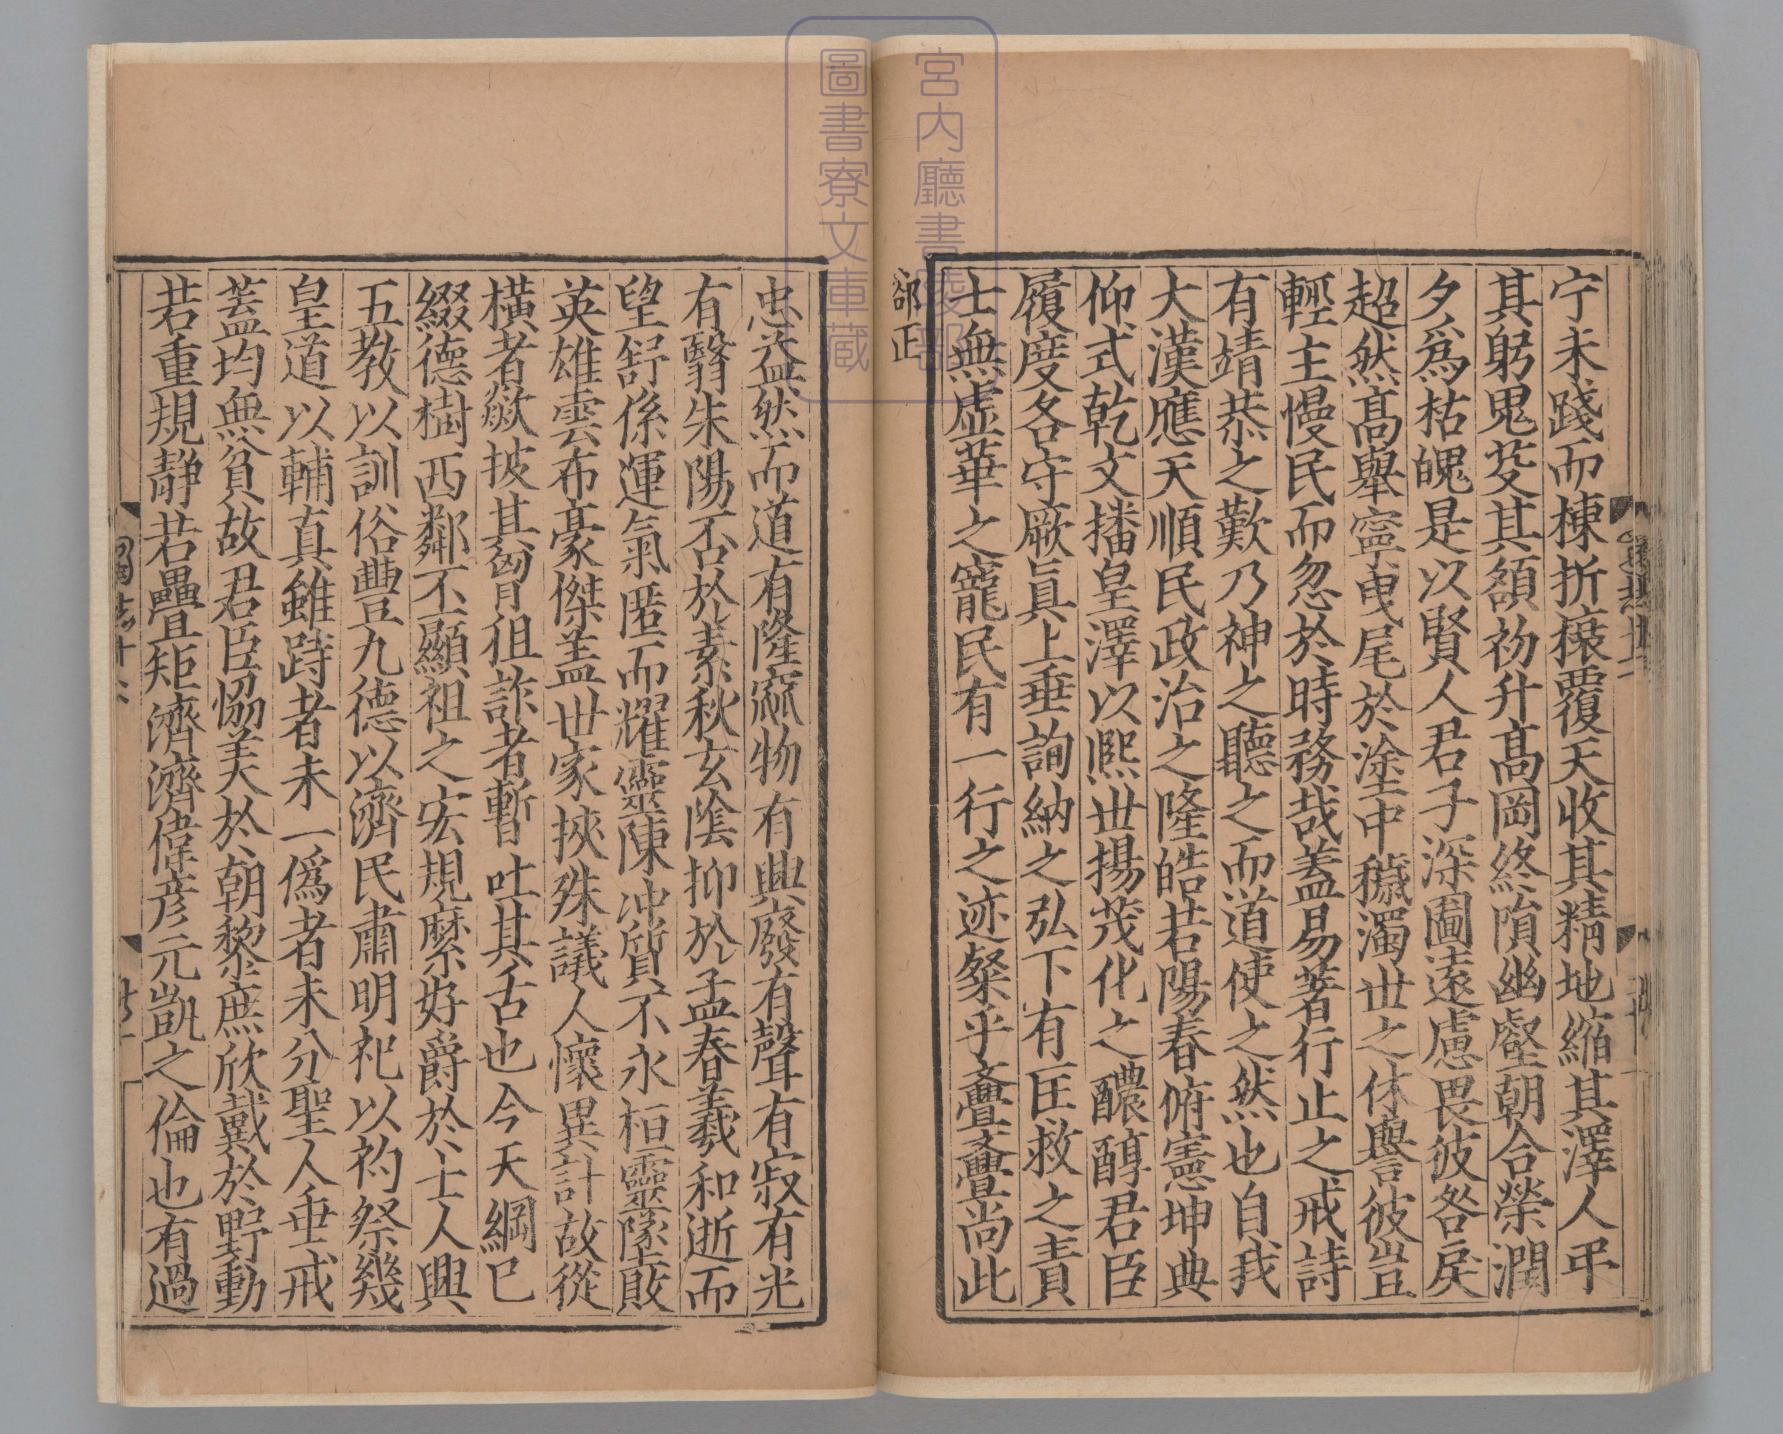 宁未踐而棟折榱覆天收其精地縮其澤人弔
其躬鬼芟其頟初升髙岡終隕幽壑朝合榮潤
夕爲枯魄是以賢人君子深圖遠慮畏彼咎戾
超然髙舉寧曳尾於塗中穢濁世之休譽彼豈
輕主慢民而忽於時務哉蓋易著行止之戒詩
有靖恭之歎乃神之聽之而道使之然也自我
大漢應天順民政治之隆皓若陽春俯憲坤典
仰式乾文播皇澤以熈世揚茂化之醲醇君臣
履度各守厥眞上垂詢納之弘下有匡救之責
士無虚華之寵民有一行之迹粲乎亹亹尚此
郤正
忠益然而道有隆窳物有興廢有聲有寂有光
有翳朱陽否於素秋玄陰抑於孟春羲和逝而
望舒係運氣匿而耀靈陳沖質不永桓靈墜敗
英雄雲布豪傑蓋世家挾殊議人懷異計故從
橫者欻披其胷狙詐者暫吐其舌也今天綱已
綴德樹西鄰丕顯祖之宏規縻好爵於士人興
五教以訓俗豊九德以濟民肅明祀以礿祭幾
皇道以輔真雖跱者未一僞者未分聖人垂戒
蓋均無貧故君臣恊美於朝黎庶欣戴於野動
若重規静若疊矩濟濟偉彦元凱之倫也有過
宮内廳書陵部
圖書寮文庫藏